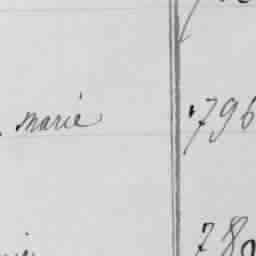 marié 796
78